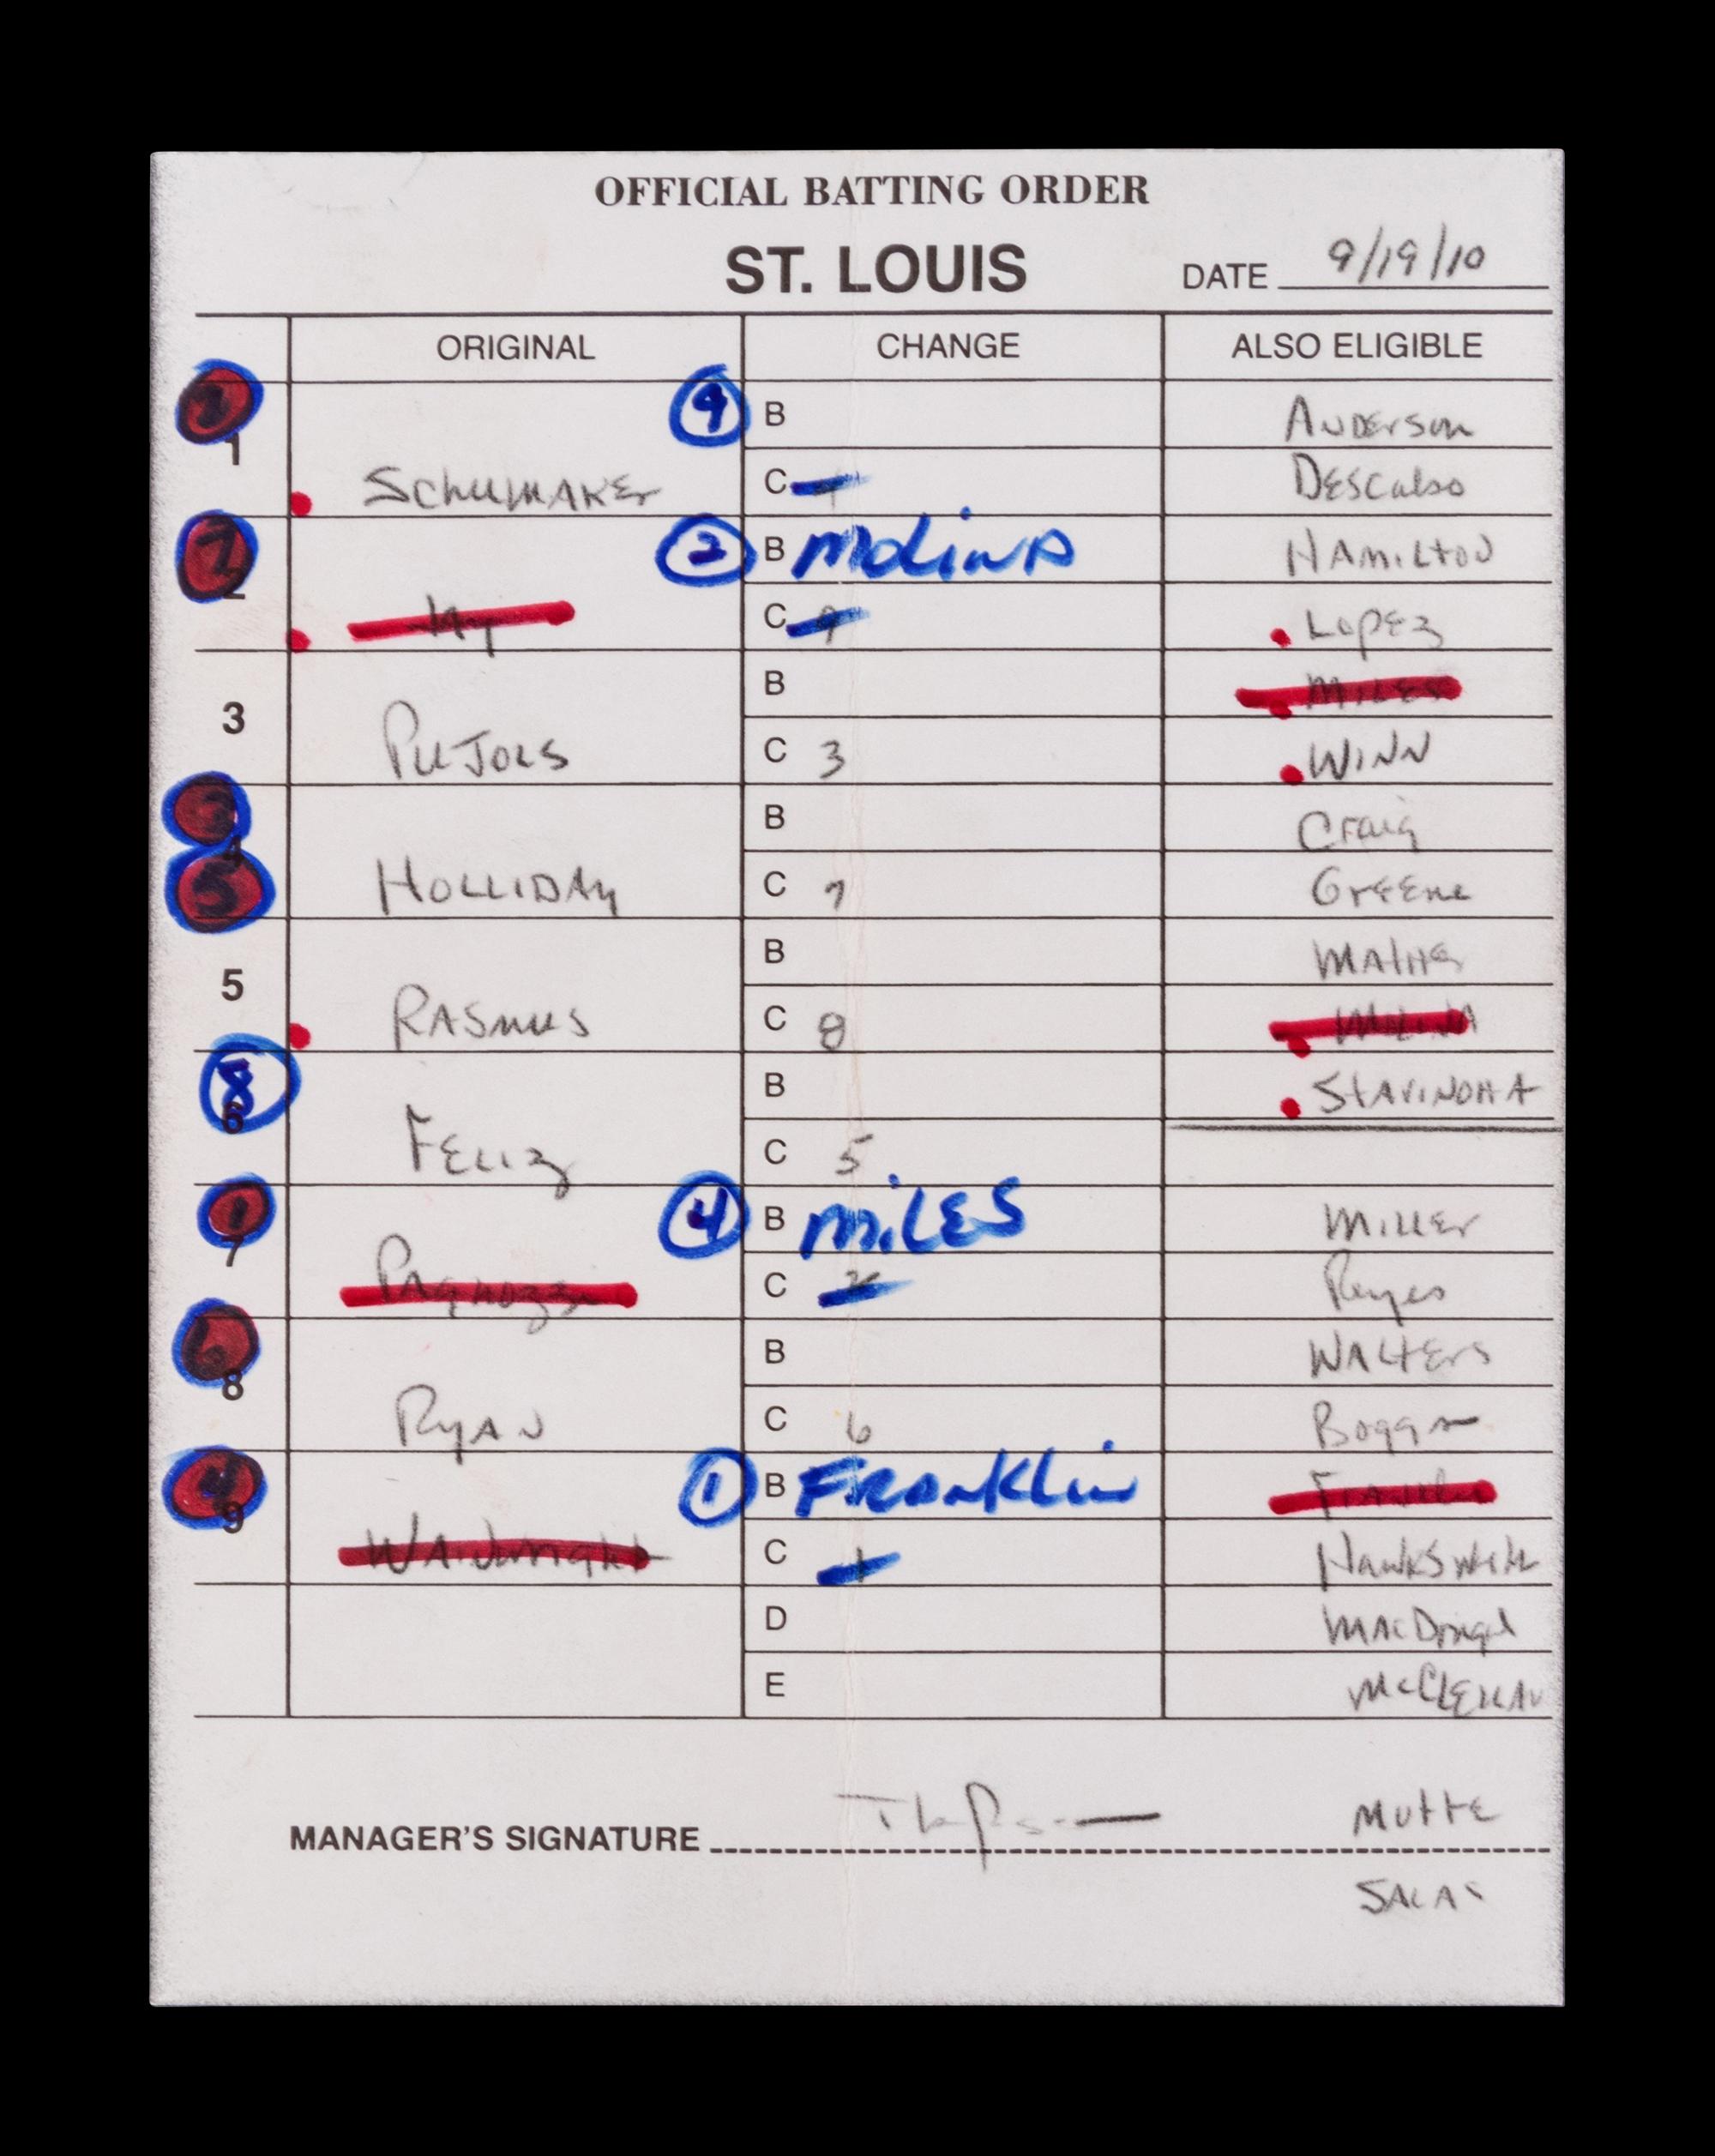 OFFICIAL BATTING ORDER
ST. LOUIS DATE 9/19/10
ORIGINAL CHANGE ALSO ELIGIBLE
1 SCHUMAKER 9 B ANDERSON
C 4 DESCALSO
7 2 JAY 2 B MOLINA HAMILTON
C 9 LOPEZ
3 PUJOLS B MILES
C 3 WINN
3 4 HOLLIDAY B Craig
5 C 7 GREENE
5 RASMUS B MATHER
C 8 MOLINA
8 6 FELIZ B STAVINOHA
C 5
1 7 PAGNOZZI 4 B MILES MILLER
C 2 Reyes
6 8 RYAN B WALTERS
C 6 BOGGS
4 9 WAINWRIGHT 1 B FRANKLIN FRANKLIN
C 1 HAWKSWORTH
D MACDOUGAL
E MCCLELLAN
MANAGER'S SIGNATURE MOTTE
SALAS